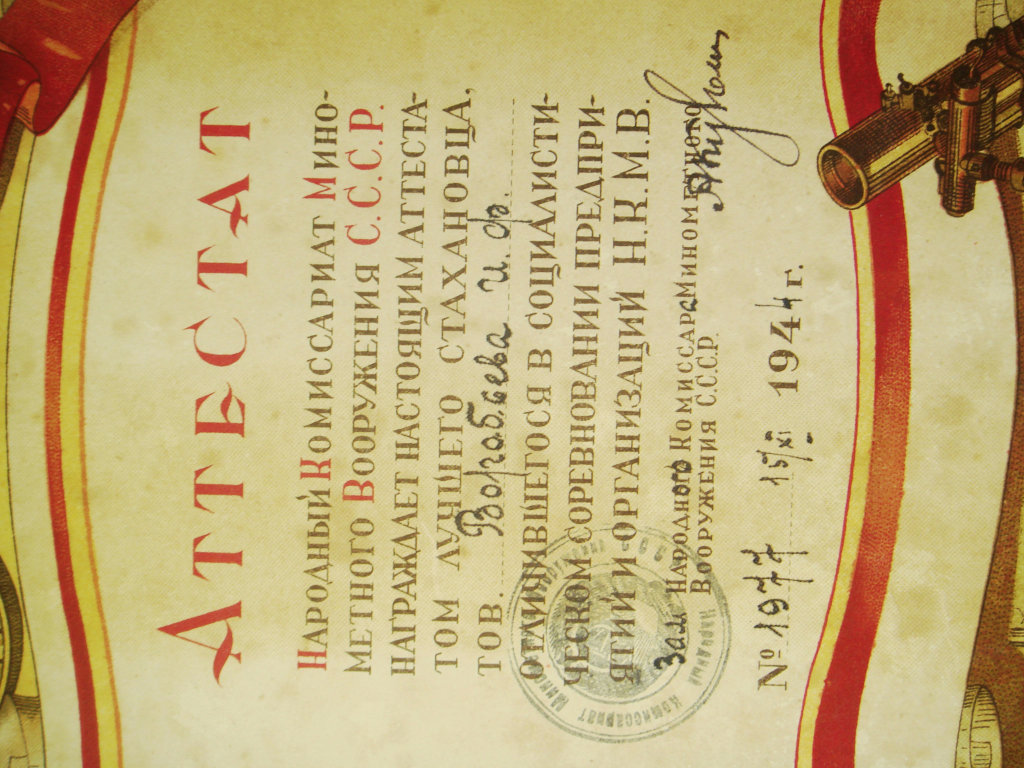 АТТЕСТАТ
НАРОДНЫЙ КОМИССАРИАТ МИНО-
МЕТНОГО ВООРУЖЕНИЯ С.С.С.Р.
НАГРАЖДАЕТ НАСТОЯЩИМ АТТЕСТА-
ТОМ ЛУЧШЕГО СТАХАНОВЦА,
ТОВ. Воробьева И. Ф.
ОТЛИЧИВШЕГОСЯ В СОЦИАЛИСТИ-
ЧЕСКОМ СОРЕВНОВАНИИ ПРЕДПРИ-
ЯТИЙ И ОРГАНИЗАЦИЙ Н.К.М.В.
Зам. НАРОДНОГО КОМИССАРА МИНОМЕТНОГО
ВООРУЖЕНИЯ С.С.С.Р.
№ 1977 15/XI 1944 г.
НАРОДНЫЙ КОМИССАРИАТ